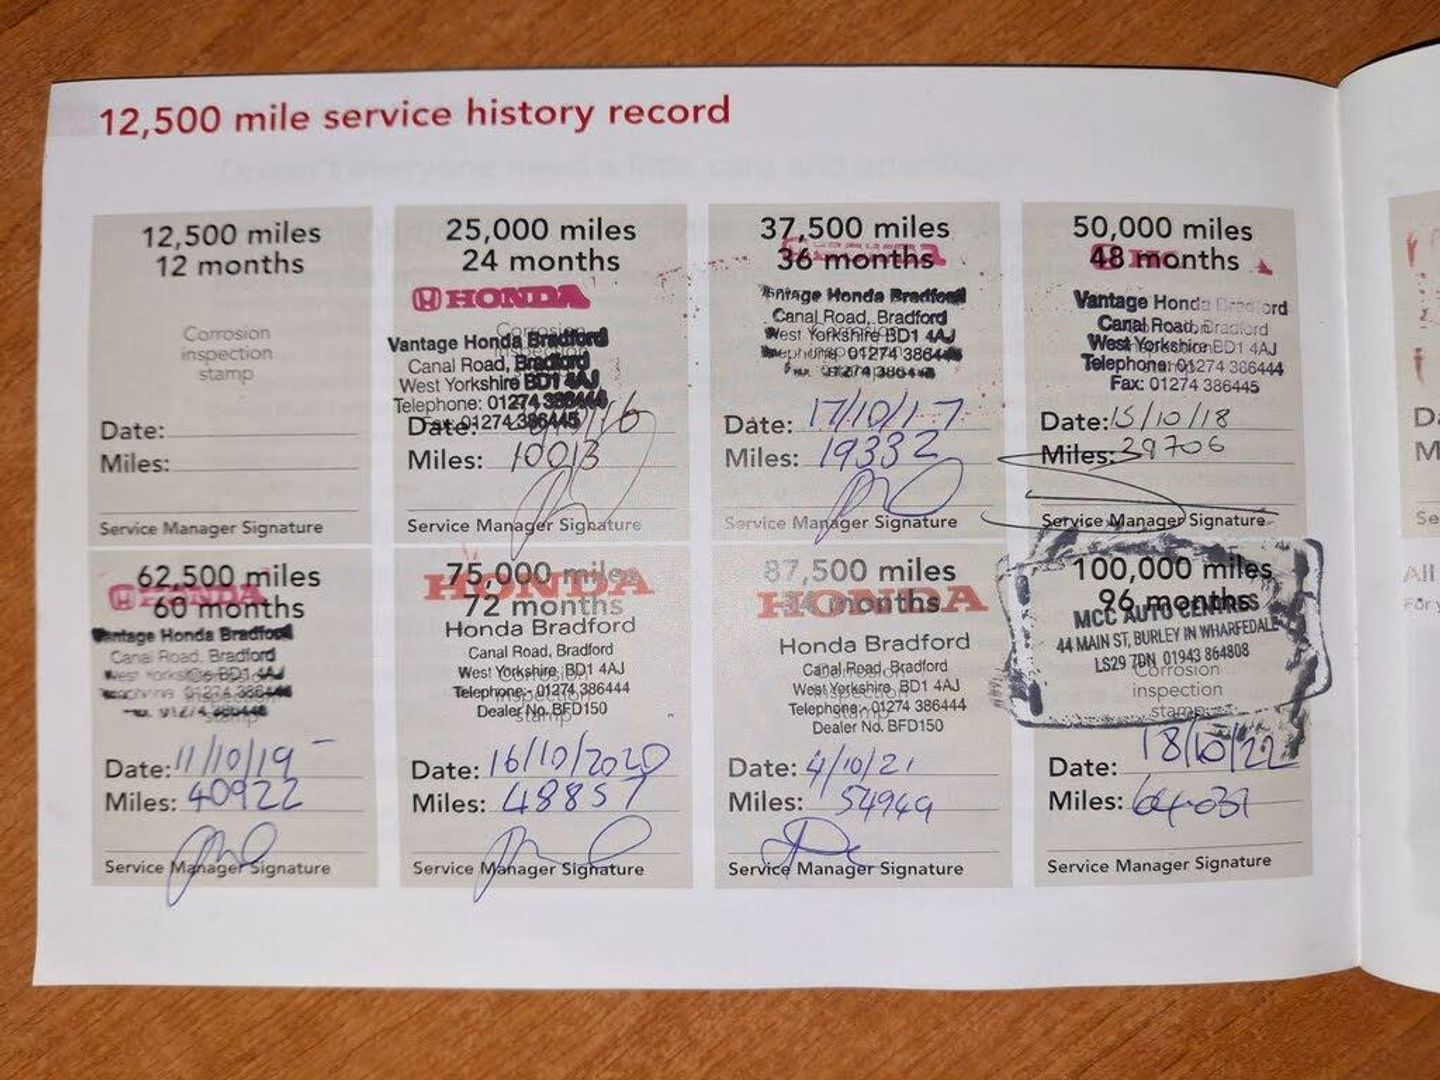 12,500 mile service history record
12,500 miles
12 months
Corrosion
inspection
stamp
Date:
Miles:
Service Manager Signature
25,000 miles
24 months
HONDA
Vantage Honda Bradford
Canal Road, Bradford
West Yorkshire BD1 4AJ
Telephone: 01274 386444
Fax: 01274 386445
Date:
Miles: 10013
Service Manager Signature
37,500 miles
36 months
Vantage Honda Bradford
Canal Road, Bradford
West Yorkshire BD1 4AJ
Telephone 01274 386444
Date: 17/10/17
Miles: 19332
Service Manager Signature
50,000 miles
48 months
Vantage Honda Bradford
Canal Road, Bradford
West Yorkshire BD1 4AJ
Telephone: 01274 386444
Fax: 01274 386445
Date: 15/10/18
Miles: 29706
Service Manager Signature
62,500 miles
60 months
HONDA
Vantage Honda Bradford
Canal Road, Bradford
West Yorkshire BD1 4AJ
Date: 11/10/19
Miles: 40922
Service Manager Signature
75,000 miles
72 months
HONDA
Honda Bradford
Canal Road, Bradford
West Yorkshire, BD1 4AJ
Telephone:- 01274 386444
Dealer No. BFD150
Date: 16/10/2020
Miles: 48857
Service Manager Signature
87,500 miles
months
HONDA
Honda Bradford
Canal Road, Bradford
West Yorkshire, BD1 4AJ
Telephone:- 01274 386444
Dealer No. BFD150
Date: 4/10/21
Miles: 54949
Service Manager Signature
100,000 miles
96 months
MCC AUTO CENTRES
44 MAIN ST, BURLEY IN WHARFEDALE
LS29 7DN 01943 864808
Corrosion
inspection
stamp
Date: 18/10/22
Miles: 64031
Service Manager Signature
All